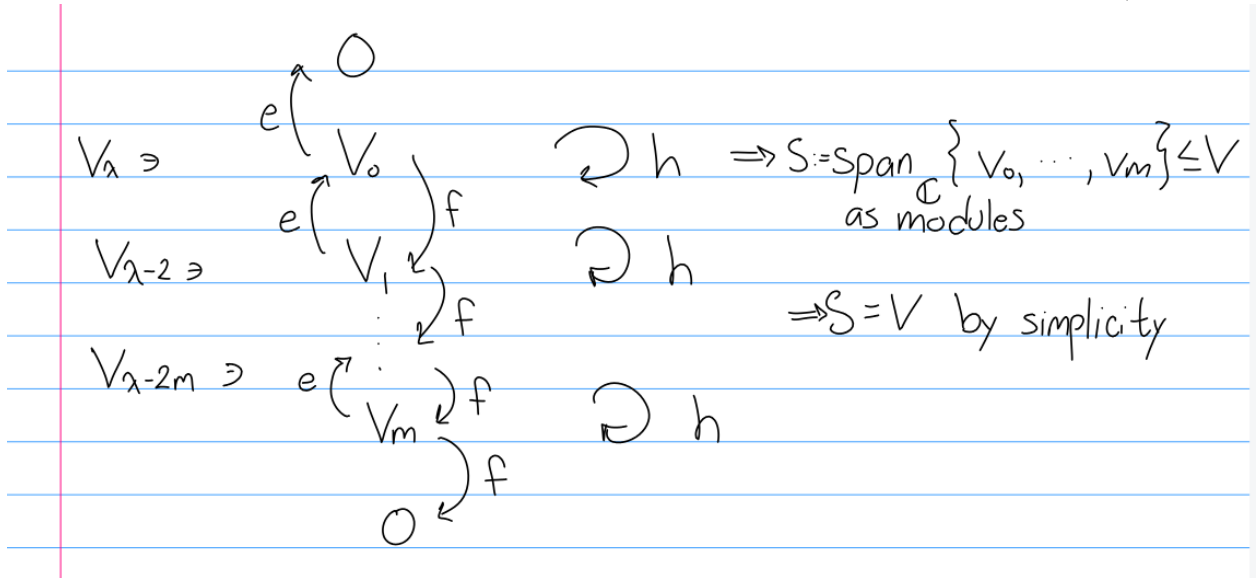 0
e
V_λ ∋ V_0 ↻ h ⇒ S:=span_ℂ {V_0, ⋯, V_m} ≤ V
as modules
e f
V_{λ-2} ∋ V_1 ↻ h
f ⇒ S = V by simplicity
⋮
V_{λ-2m} ∋ e f
V_m ↻ h
f
0